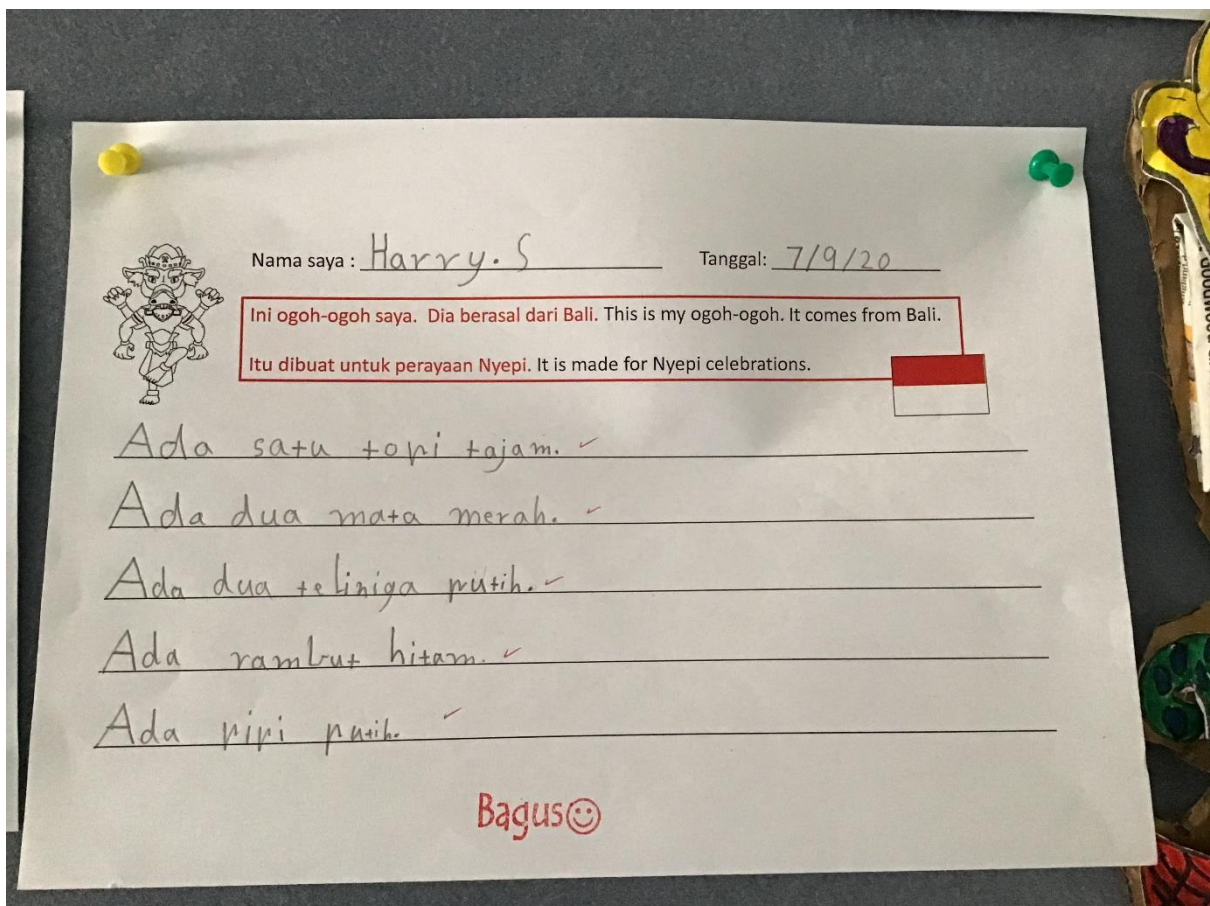 Nama saya : Harry. S Tanggal: 7/9/20
Ini ogoh-ogoh saya. Dia berasal dari Bali. This is my ogoh-ogoh. It comes from Bali.
Itu dibuat untuk perayaan Nyepi. It is made for Nyepi celebrations.
Ada satu topi tajam.
Ada dua mata merah.
Ada dua teliniga putih.
Ada rambut hitam.
Ada pipi putih.
Bagus